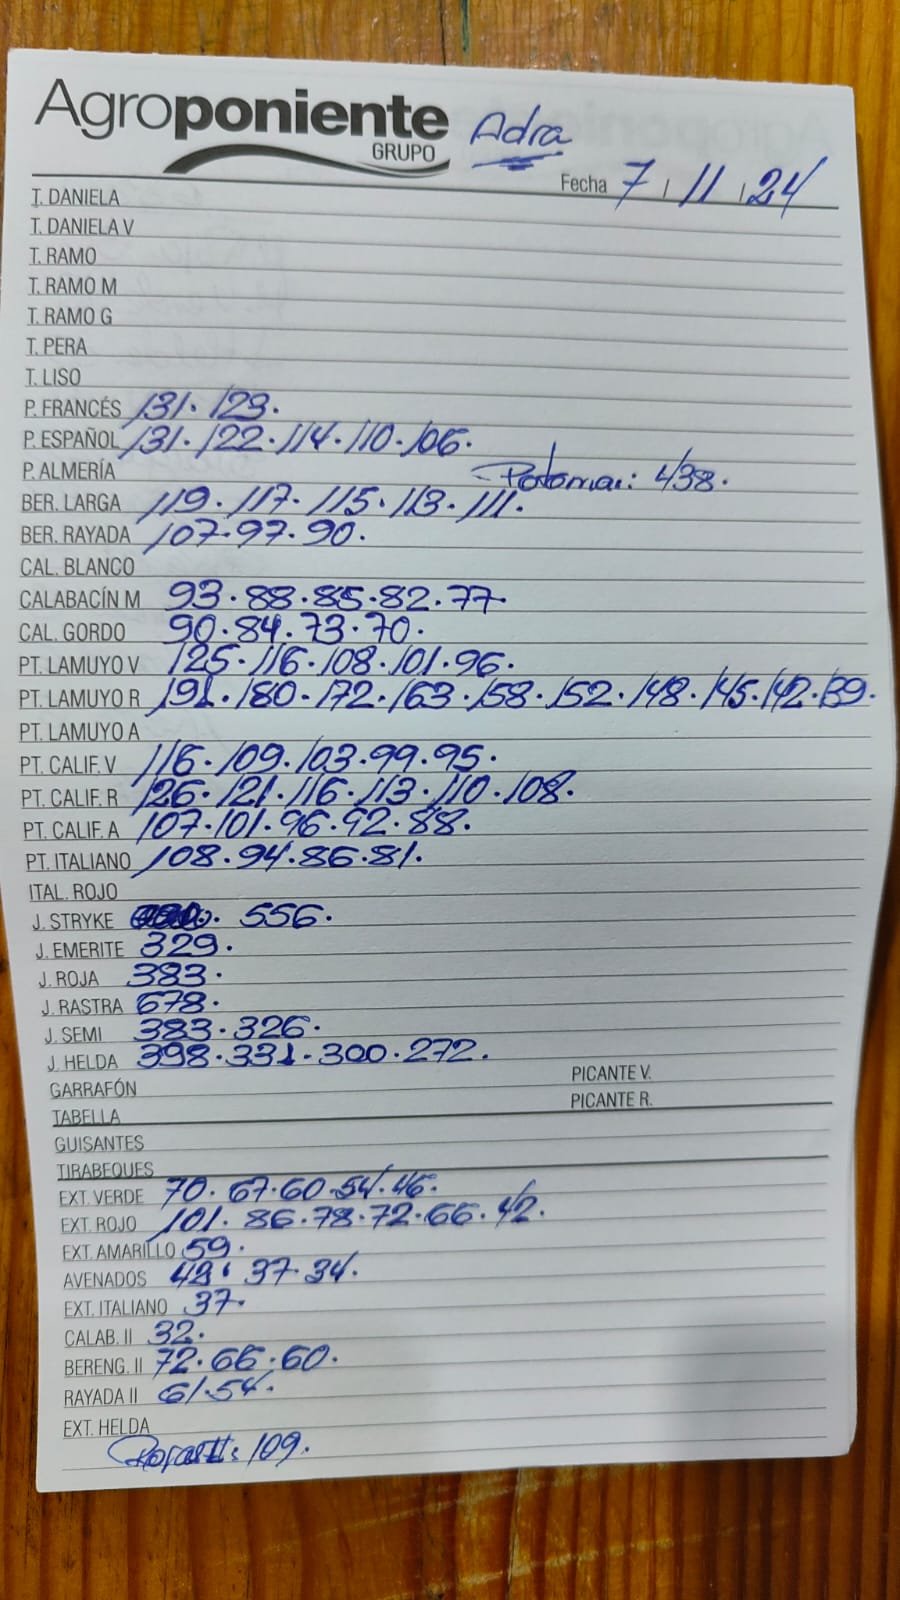 Agroponiente Adra
GRUPO
Fecha 7 / 11 / 24
T. DANIELA
T. DANIELA V
T. RAMO
T. RAMO M
T. RAMO G
T. PERA
T. LISO
P. FRANCÉS 131. 123.
P. ESPAÑOL 131. 122. 114. 110. 106.
P. ALMERÍA 438.
BER. LARGA 119. 117. 115. 113. 111.
BER. RAYADA 107. 97. 90.
CAL. BLANCO
CALABACÍN M 93. 88. 85. 82. 77.
CAL. GORDO 90. 84. 73. 70.
PT. LAMUYO V 125. 116. 108. 101. 96.
PT. LAMUYO R 191. 180. 172. 163. 158. 152. 148. 145. 142. 139.
PT. LAMUYO A
PT. CALIF. V 116. 109. 103. 99. 95.
PT. CALIF. R 126. 121. 116. 113. 110. 108.
PT. CALIF. A 107. 101. 96. 92. 88.
PT. ITALIANO 108. 94. 86. 81.
ITAL. ROJO
J. STRYKE 556.
J. EMERITE 329.
J. ROJA 383.
J. RASTRA 678.
J. SEMI 383. 326.
J. HELDA 398. 331. 300. 272.
GARRAFÓN PICANTE V.
TABELLA PICANTE R.
GUISANTES
TIRABEQUES
EXT. VERDE 70. 67. 60. 54. 46.
EXT. ROJO 101. 86. 78. 72. 66. 42.
EXT. AMARILLO 59.
AVENADOS 37. 34.
EXT. ITALIANO 37.
CALAB. II 32.
BERENG. II 72. 66. 60.
RAYADA II 61. 54.
EXT. HELDA
109.